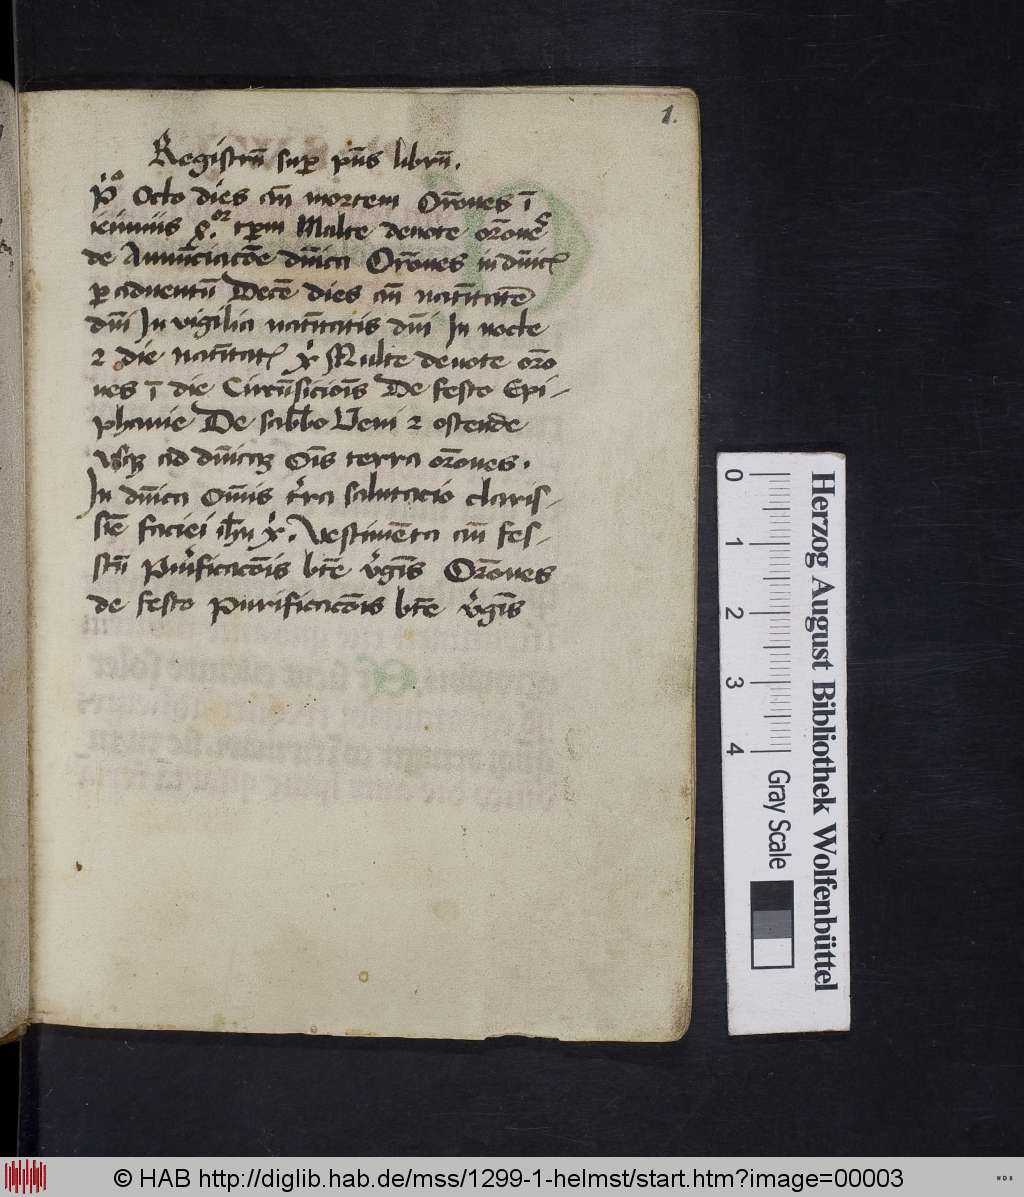 1.
Registrū suꝑ pn̄s librū.
P̊º Octo dies an̄ mortem Or̄ones ī
ieiuniis q̄.or tp̄m Multe deuote or̄one
de Annūciacōe dn̄ica Or̄ones in dn̄ic
ꝑ aduentū Decē dies an̄ natītatē
dn̄i In vigilia natītatis dn̄i In nocte
⁊ die natītat xp̄i Multe deuote oro
nes ī die Circūsicioīs De festo Epi-
phanie De sabb̄o Veni ⁊ ostende
vsqꝫ ad dn̄icaꝫ Oīs terra or̄ones.
In dn̄ica Om̄is tr̄ra salutacio claris-
sīe faciei ih̄u xp̄i. Vestimēta an̄ fes-
stū purificacōis btē v̓gīs Or̄ones
de festo purificacōis btē v̓gīs
Herzog August Bibliothek Wolfenbüttel
0 1 2 3 4 Gray Scale
© HAB http://diglib.hab.de/mss/1299-1-helmst/start.htm?image=00003